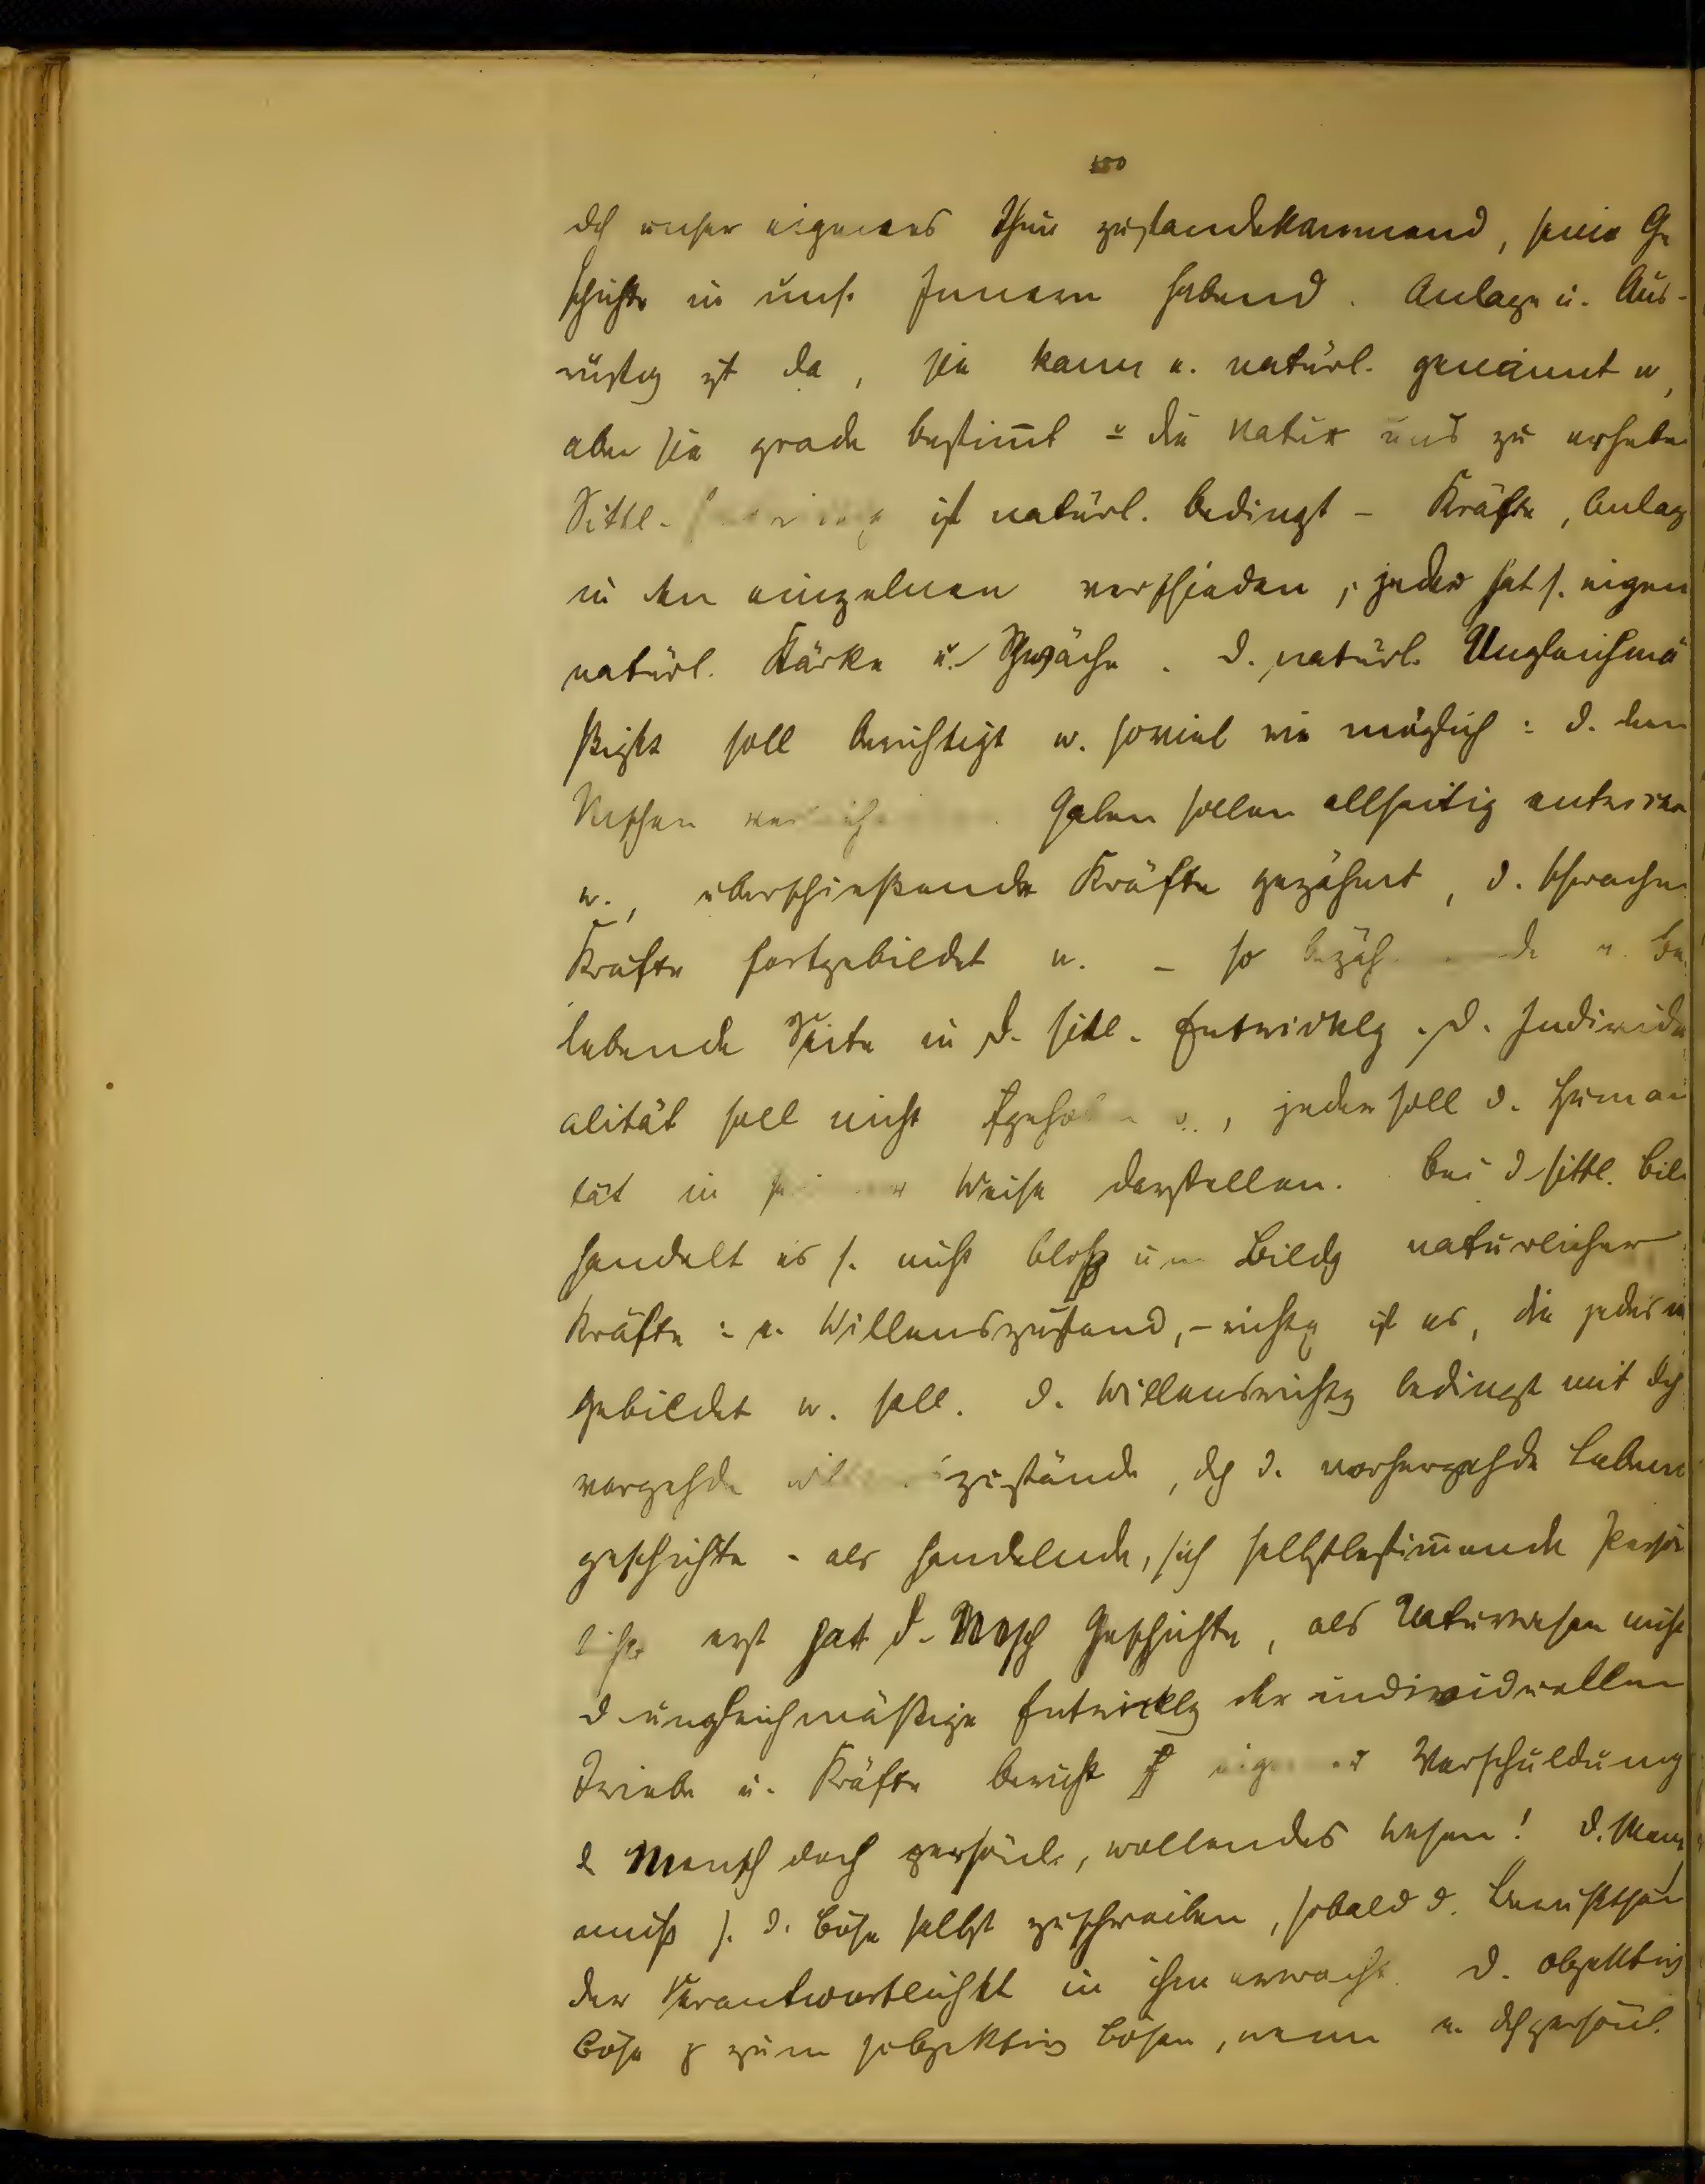 150
dch unser eigenes Thun zustandekommend, seine Ge
schichte in uns. Innern habend. Anlage u. Aus-
rüstg ist da, sie kann e. natürl. genannt w,
aber sie grade bestim̅t die Natur uns zu erheben
Sittl. ist natürl. bedingt – Kräfte, Anlag
in den einzelnen verschieden, jeder hat s. eigen
natürl. Stärke u. Schwäche. D. natürl. Ungleichmä
ßigkt soll berichtigt w. soviel wie möglich: d. dem
Gaben sollen allseitig
w., überschießende Kräfte gezähmt, d. schwachen
Kräfte fortgebildet w. – so u. be
lebende Seite in d. sittl. Entwicklg. D. Individu
alität soll nicht, jeder soll d. Humani
tät in Weise darstellen. Bei d sittl. Bild
handelt es s. nicht bloß um Bildg natürlicher
Kräfte: e. Willenszustand, – richtg ist es, die
gebildet w. soll. D. Willensrichtg bedingt mit dch
vorgehde zustände, dch d. vorhergehde Lebens
geschichte – als handelnde, sich selbstbestim̅ende Persön
erst hat d. Mesch Geschichte, als Naturwesen nicht
d ungleichmäßige Entwicklg der individuellen
Triebe u. Kräfte beruht eigener Verschuldung
d Mensch doch persönl., wollendes Wesen! D. Mens
muß s. d. Böse selbst zuschreiben, sobald d. Bewußtsein
der Verantwortlichkt in ihm erwacht. D. objektiv
Böse zum subjektiv Bösen, wenn e. dch persönl.